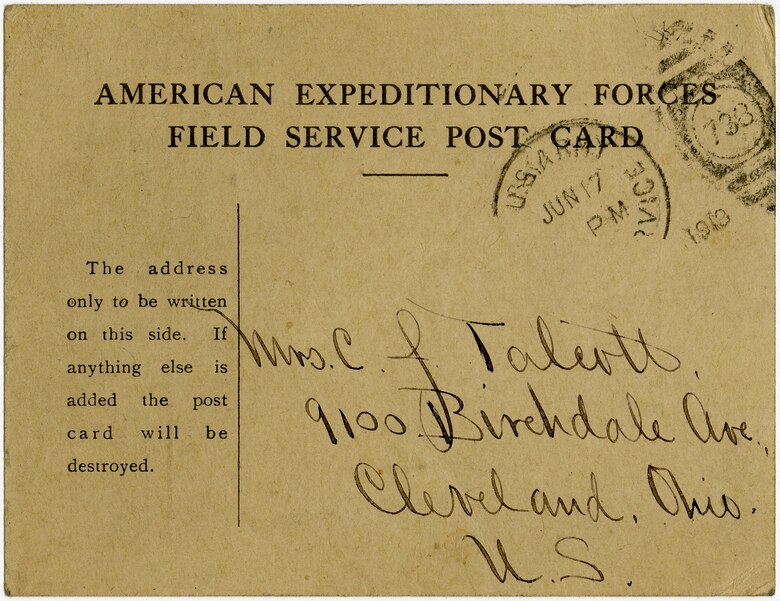 AMERICAN EXPEDITIONARY FORCES
FIELD SERVICE POST CARD
JUN 17
P M
733
The address
only to be written
on this side. If
anything else is
added the post
card will be
destroyed.
Mrs. C. J. Talcott,
9100 Birchdale Ave.,
Cleveland, Ohio.
U. S.